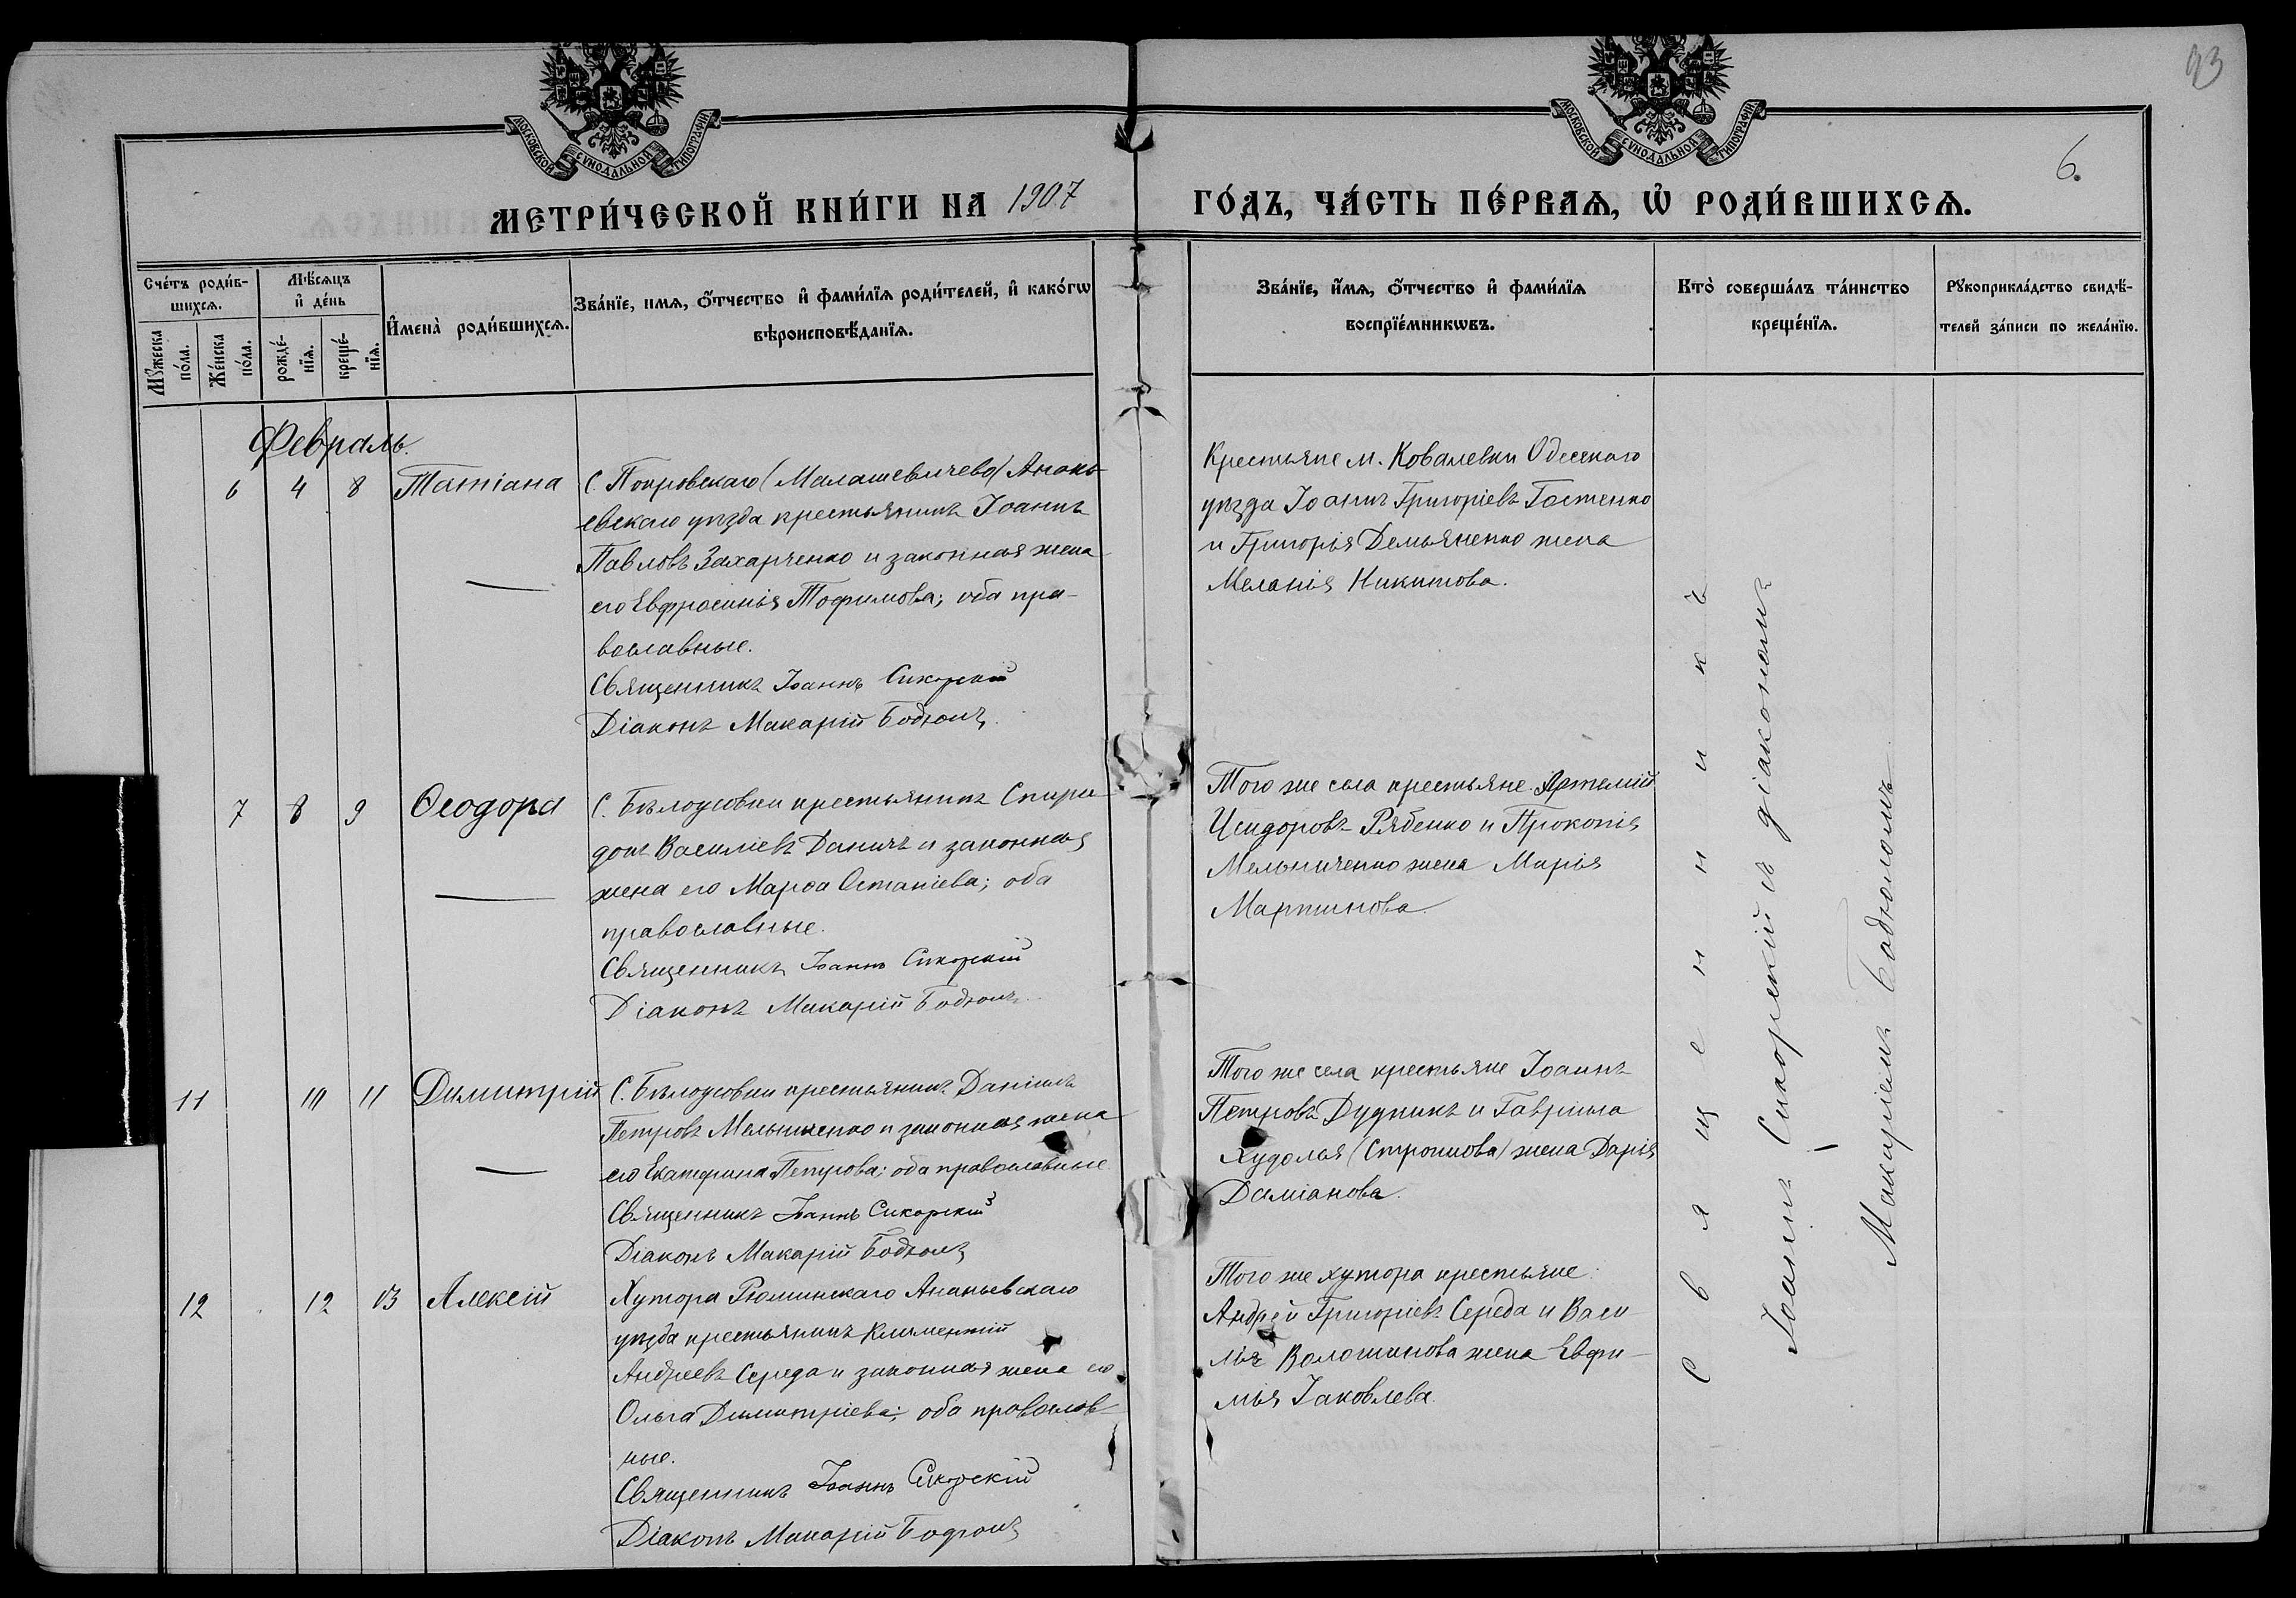 93
МОСКОВСКОЙ СУНОДАЛЬНОЙ ТИПОГРАФІИ
МОСКОВСКОЙ СУНОДАЛЬНОЙ ТИПОГРАФІИ
6.
МЕТРИ́ЧЕСКОЙ КНИ́ГИ НА 1907
ГО́ДЪ, ЧА́СТЬ ПЕ́РВАѦ, Ѡ҆ РОДИ́ВШИХСѦ.
Сче́тъ роди́в-
шихсѧ.
Мѣ́сѧцъ
и҆ де́нь
Мꙋ́жеска
по́ла.
Же́нска
по́ла.
рожде́-
нїѧ.
креще́-
нїѧ.
И҆мена̀ роди́вшихсѧ.
Зва́нїе, имѧ, ѻ҆́тчество и҆ фами́лїѧ роди́телей, и҆ како́гѡ
вѣроисповѣ́данїѧ.
Зва́нїе, и҆́мѧ, ѻ҆́тчество и҆ фами́лїѧ
воспрїе́мникѡвъ.
Кто̀ соверша́лъ та́инство
креще́нїѧ.
Рꙋкоприкла́дство свидѣ́-
телей за́писи по жела́нїю.
Февраль.
6 4 8 Татіана
С. Покровскаго (Малашевичево) Анань-
евскаго уѣзда крестьянинъ Іоаннъ
Павловъ Захарченко и законная жена
его Евфросинья Тофимова; оба пра-
вославные.
Священникъ Іоаннъ Сикорскій
Діаконъ Макарій Бодюлъ
Крестьяне м. Ковалевки Одесскаго
уѣзда Іоаннъ Григоріевъ Гостенко
и Григорія Демьяненко жена
Меланія Никитова.
7 8 9 Ѳеодора
С. Бѣлоусовки крестьянинъ Спири-
донъ Василіевъ Даничъ и законная
жена его Марѳа Остапіева; оба
православные.
Священникъ Іоаннъ Сикорскій
Діаконъ Макарій Бодюлъ
Того же села крестьяне Артемій
Исидоровъ Рябенко и Прокопія
Мельниченко жена Марія
Мартинова.
11 10 11 Димитрій
С. Бѣлоусовки крестьянинъ Даніилъ
Петровъ Мельниченко и законная жена
его Екатерина Петрова; оба православные
Священникъ Іоаннъ Сикорскій
Діаконъ Макарій Бодюлъ
Того же села крестьяне Іоаннъ
Петровъ Дудникъ и Гавріила
Худолья (Строикова) жена Дарія
Даміанова.
12 12 13 Алексій
Хутора Рюминскаго Ананьевскаго
уѣзда крестьянинъ Климентій
Андреевъ Середа и законная жена его
Ольга Димитріева; оба православ-
ные.
Священникъ Іоаннъ Сикорскій
Діаконъ Макарій Бодюлъ
Того же хутора крестьяне
Андрей Григоріевъ Середа и Васи-
лія Волошинова жена Евфи-
мія Іаковлева.
Священникъ
Іоаннъ Сикорскій съ діакономъ
Макаріемъ Бодюломъ